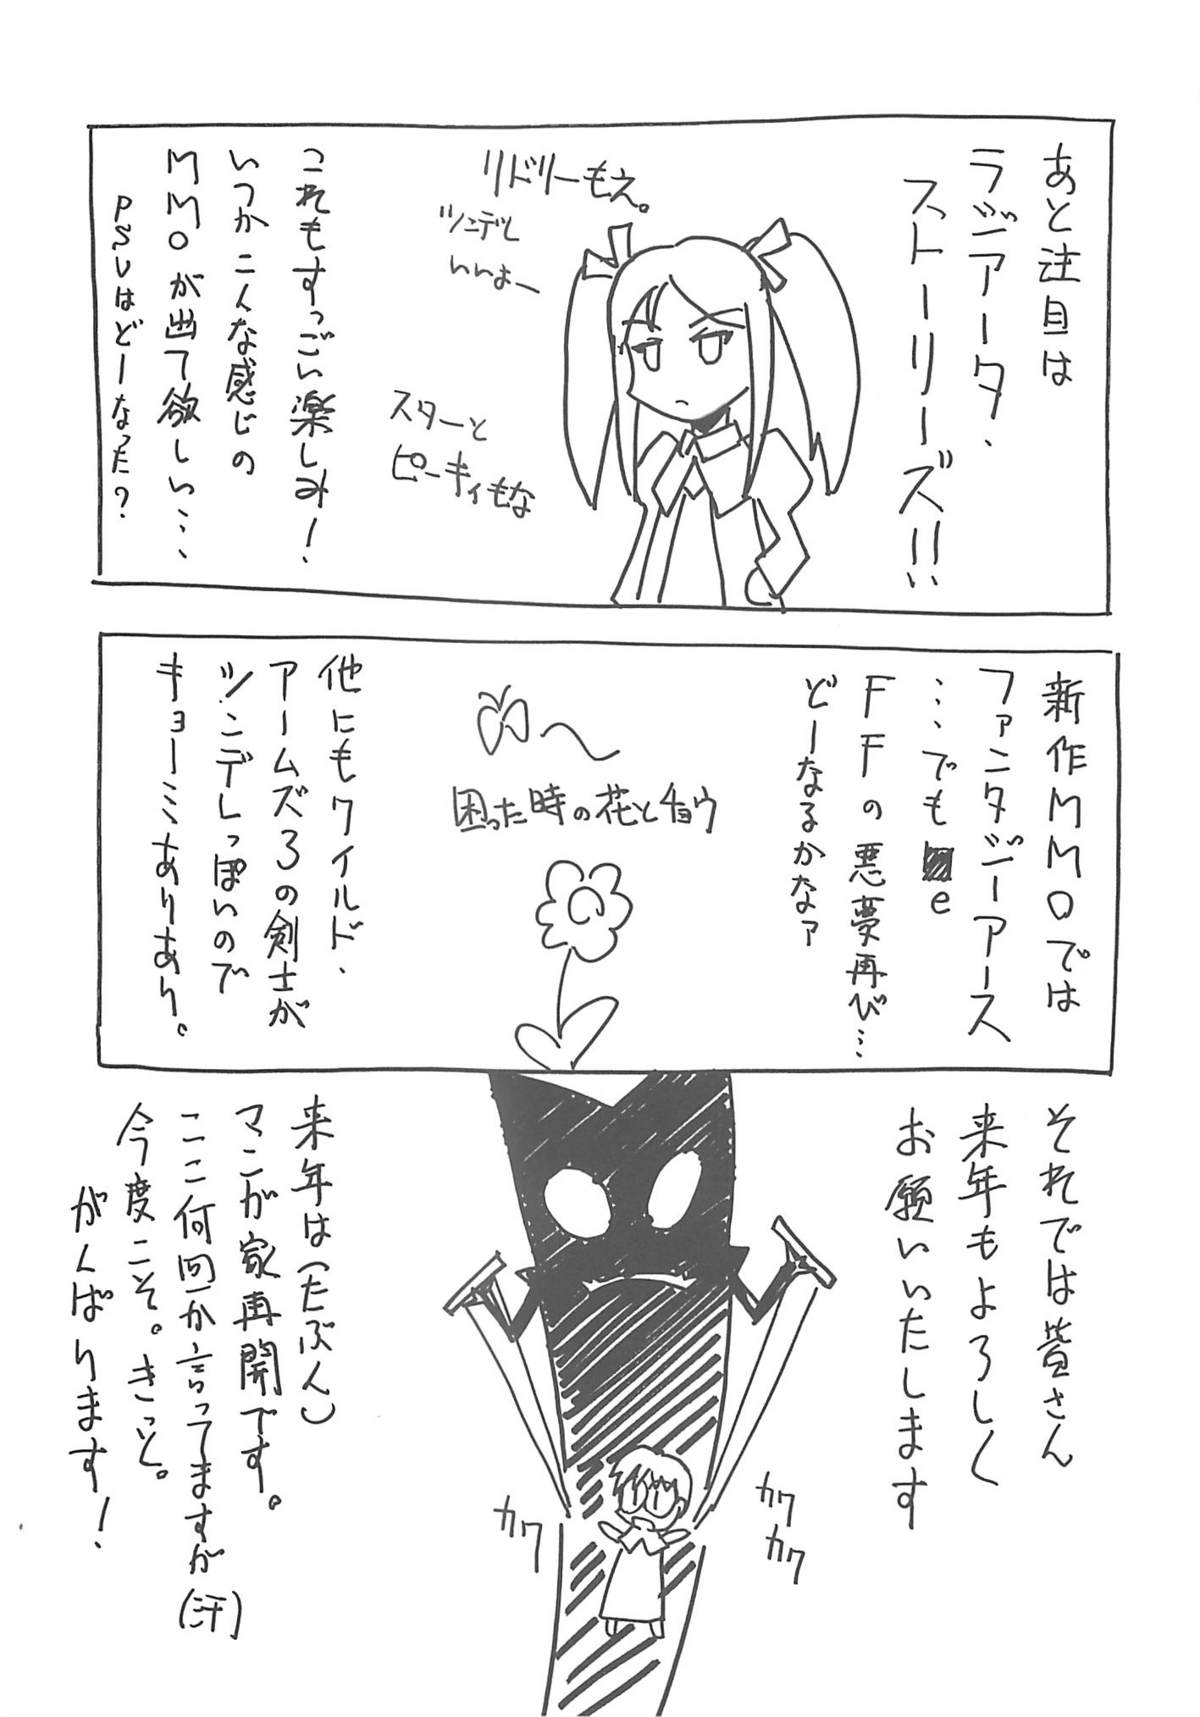 あと注目は
ラジアータ・
ストーリーズ!!
リドリーもえ。
ツンデレ
いいよー
スターと
ピーキィもな
これもすっごい楽しみ!
いつかこんな感じの
MMOが出て欲しい…
PSUはどーなった?
新作MMOでは
ファンタジーアース
…でも e
FFの悪夢再び…
どーなるかなァ
困った時の花とチョウ
他にもワイルド・
アームズ3の剣士が
ツンデレっぽいので
キョーミありあり。
それでは皆さん
来年もよろしく
お願いいたします
カク
カク
カク
来年は(たぶん)
マンガ家再開です。
ここ何回か言ってますが(汗)
今度こそ。きっと。
がんばります!